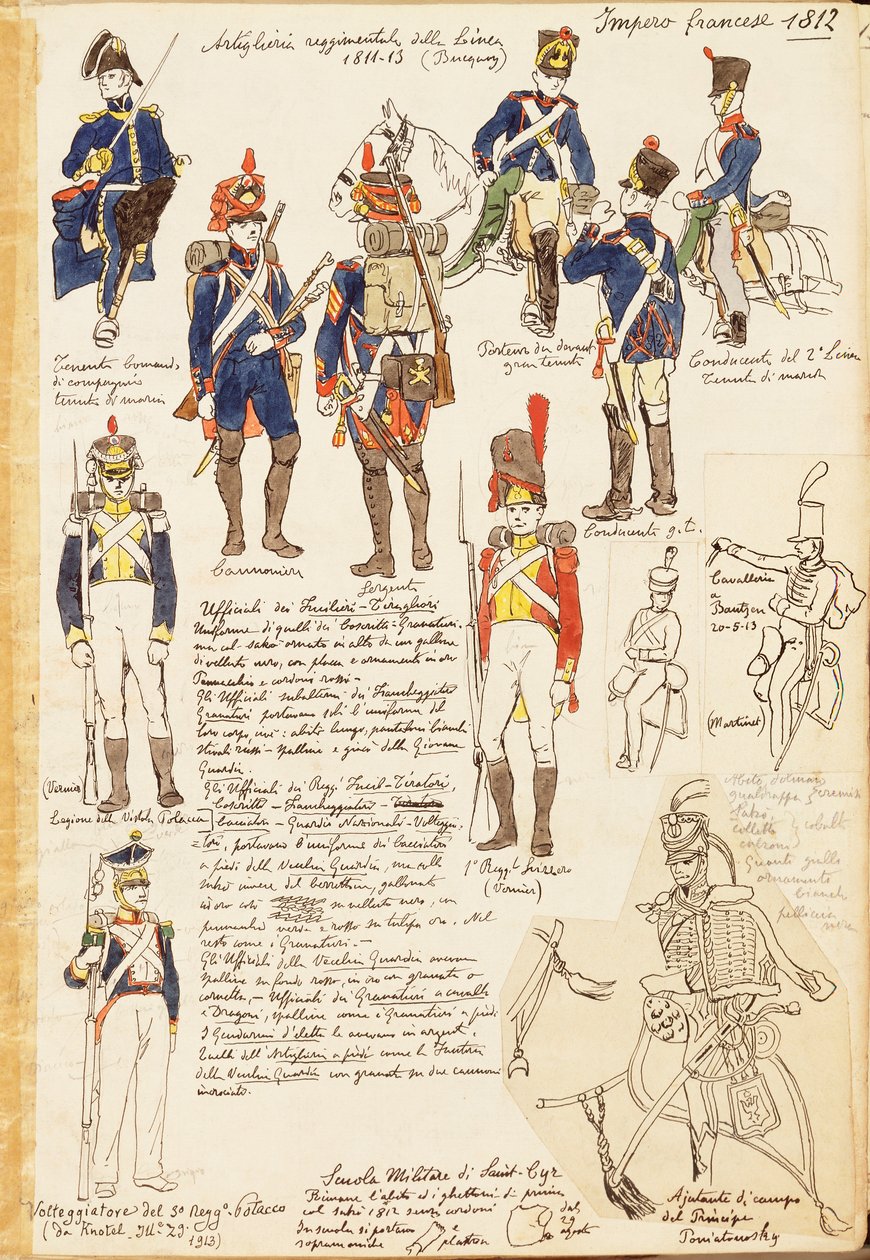 Impero francese 1812
Artiglieria reggimentale della Linea
1811-13 (Bucquoy)
Tenente Comand.
di compagnia
tenuta di marcia
Cannoniere
Sergente
gran tenuta
Conducente del 2° Linea
Tenuta di marcia
Conducente g. t.
Cavalleria
a
Bautzen
20-5-13
(Martinet)
(Vernier)
Legione della Vistola Polacca
1° Regg.t Svizzero
(Vernier)
Ufficiali dei Fucilieri - Tiragliori
Uniforme di quelli dei Coscritti-Granatieri.
ma col sakò ornato in alto da un gallone
di velluto nero, con placca e ornamenti in oro
Pennacchio e cordoni rossi -
Gli Ufficiali subalterni dei Fiancheggiatori
Granatieri portavano soli l'uniforme del
loro corpo, cioè: abito lungo, pantaloni bianchi
stivali russi - spalline e giacò della Giovane
Guardia.
Gli Ufficiali dei Regg.i Fucil-Tiratori,
Coscritti - Fiancheggiatori -
Cacciatori - Guardie Nazionali - Volteggia
tori, portavano l'uniforme dei Cacciatori
a piedi della Vecchia Guardia, ma colle
sakò invece del berrettone, gallonato
ad oro su velluto nero, con
pennacchio verde e rosso su tulipa oro. Nel
resto come i Granatieri. -
Gli Ufficiali della Vecchia Guardia avevano
spalline su fondo rosso, in oro con granata o
cornetta, - Ufficiali dei Granatieri a cavallo
e Dragoni, spalline come i Granatieri a piedi
I Gendarmi d'elette le avevano in argento.
Quelli dell'Artiglieria a piedi come la Fanteria
della Vecchia Guardia con granata su due cannoni
incrociati.
Abito dolman
gualdrappa
Sakò
colletto
calzoni
cobalto
Guanti gialli
ornamenti
bianchi
pelliccia
nera
grigio
Volteggiatore del 3° Regg.° Polacco
(da Knötel - III° 29.
1913)
Scuola Militare di Saint-Cyr
Rimane l'abito ed i ghettoni di prima
col sakò 1812 senza cordoni
In scuola si portano
sopramaniche e plastron
dal
29
agosto
Ajutante di campo
del Principe
Poniatowsky